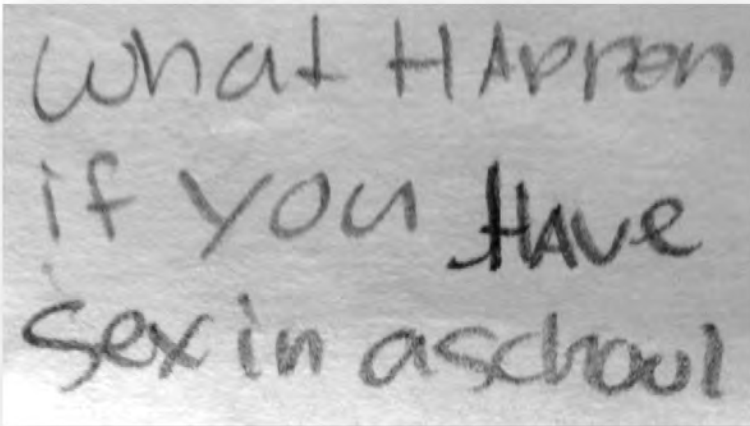 what HAppen
if you HAve
sex in a schoul